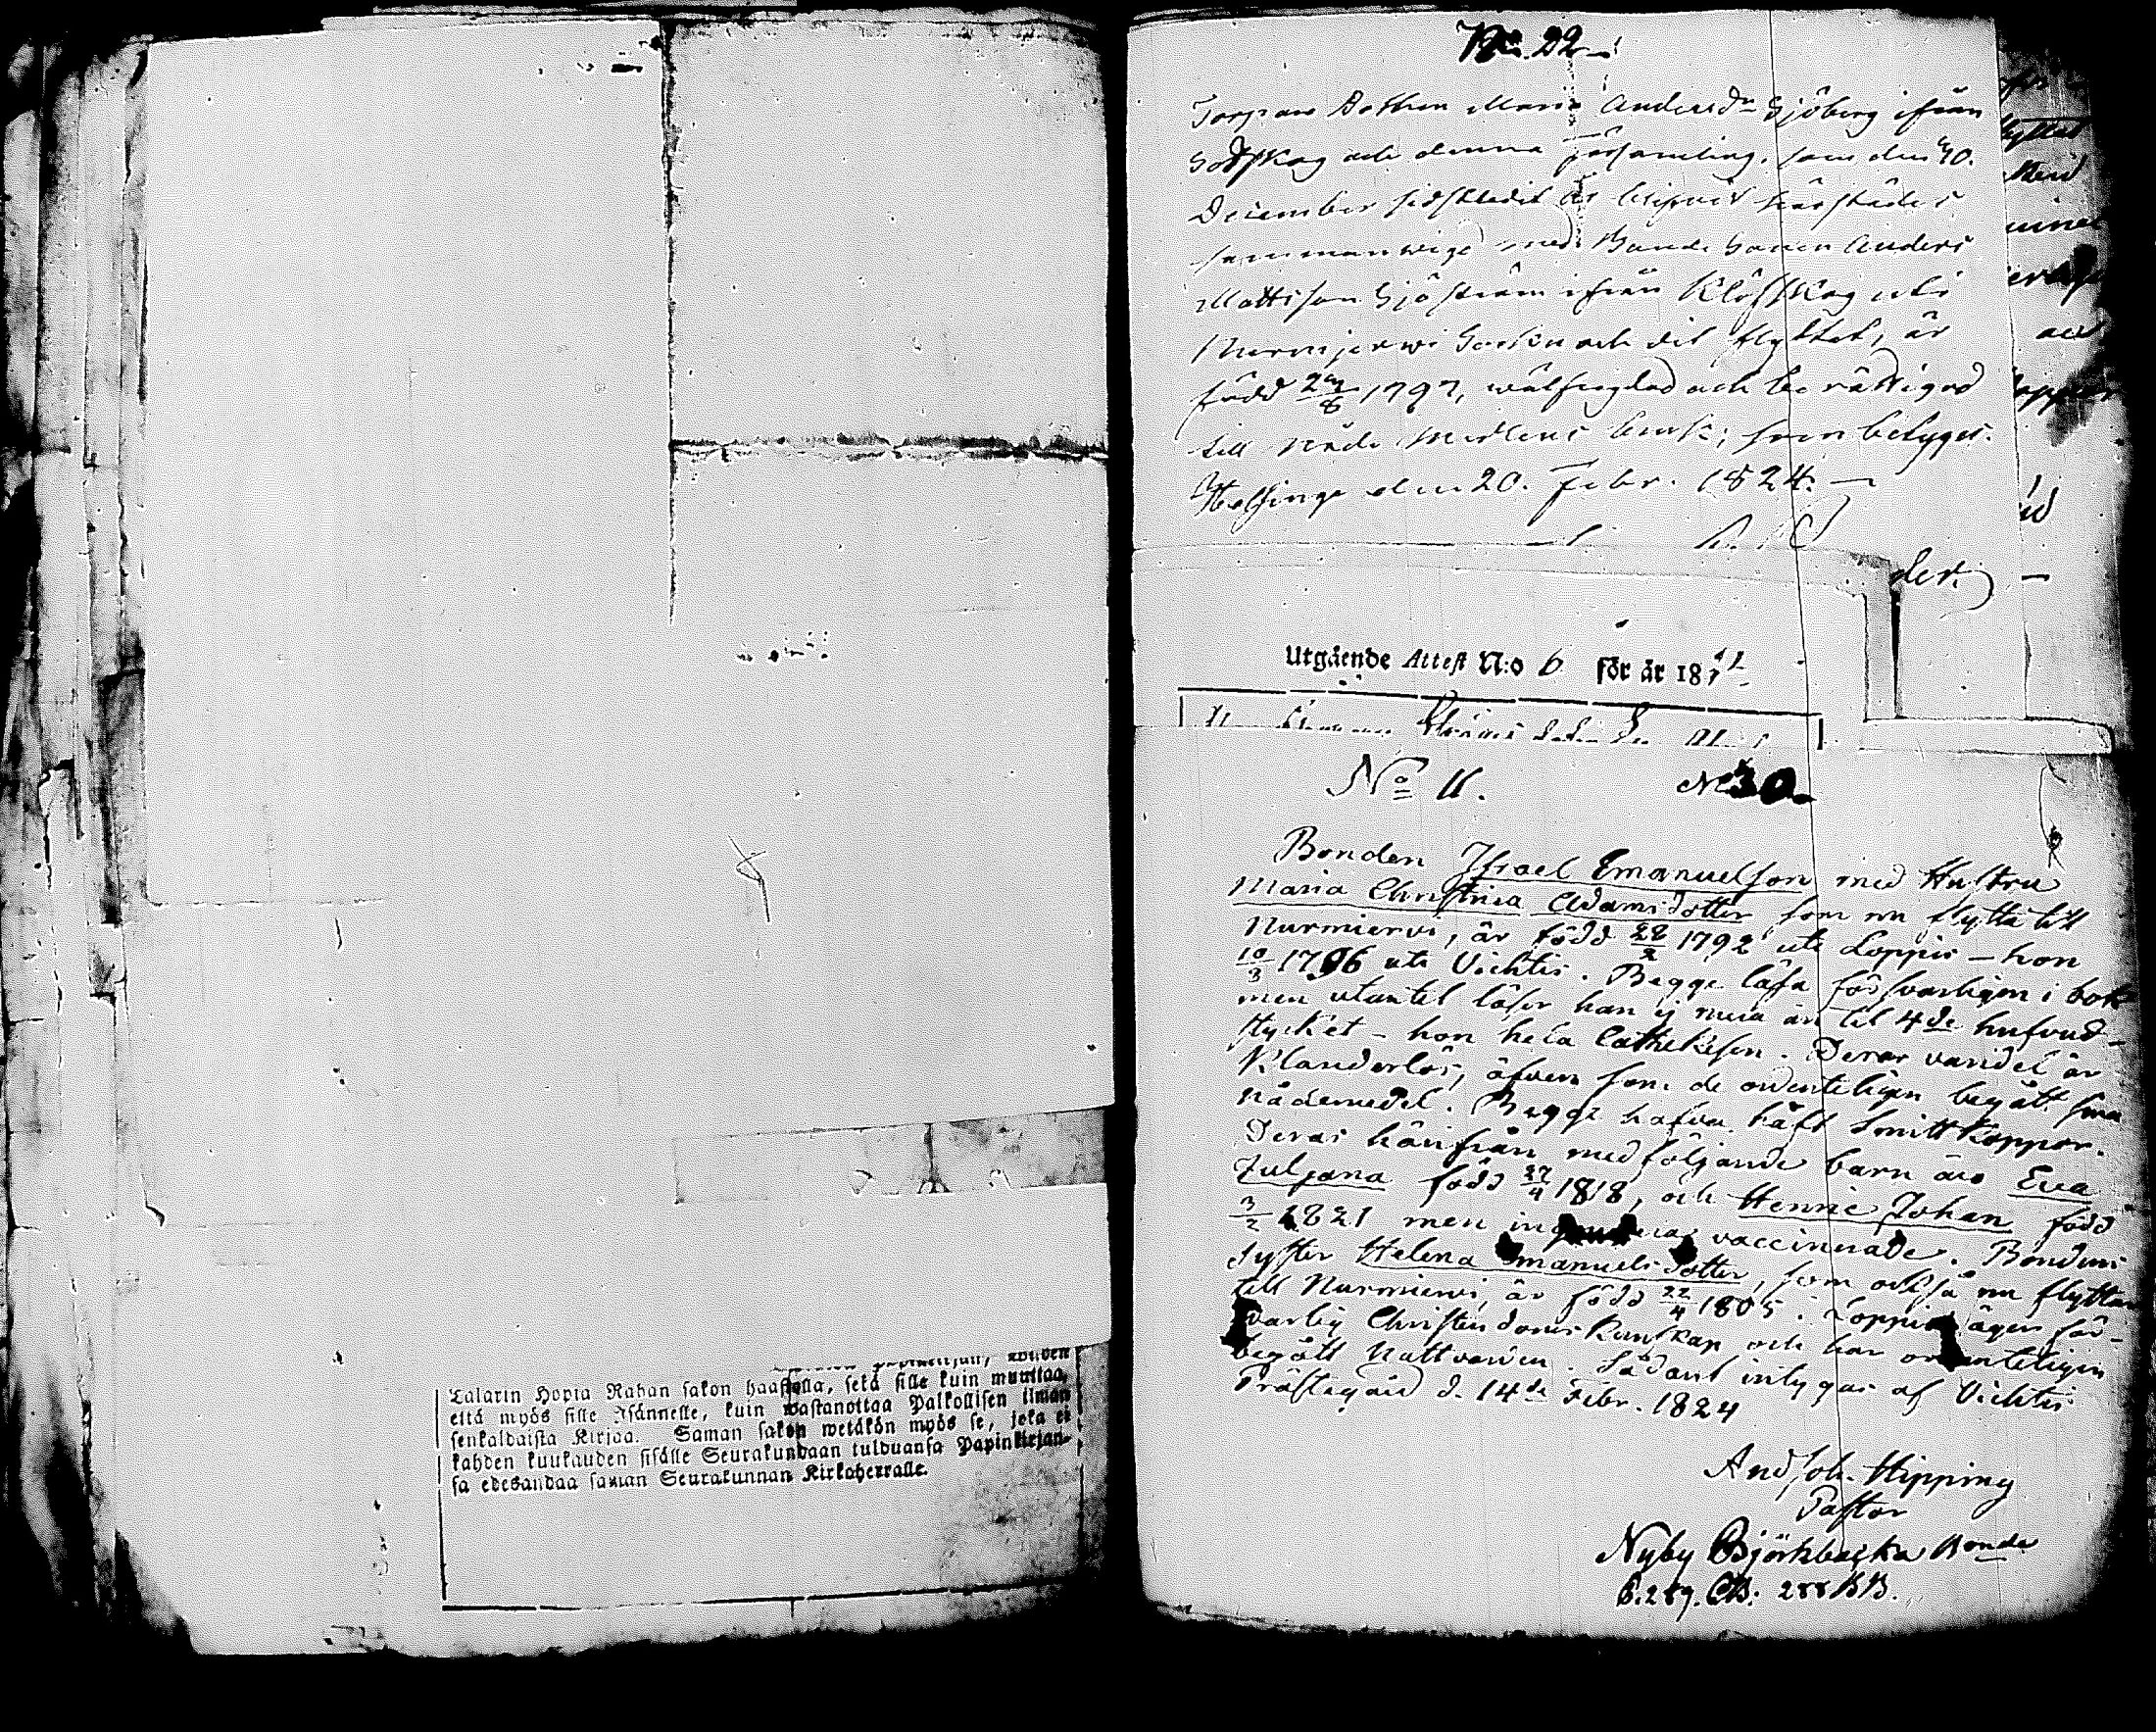 Talarin Hopia Rahan sakon haastolla, sekä sille kuin muuttaa,
että myös sille Isännelle, kuin wastanottaa Palkollisen ilman
senkaldaista Kirjaa. Saman sakon wetäkön myös se, joka ei
kahden kuukauden sisälle Seurakundaan tulduansa Papinkirjan-
sa edesandaa saman Seurakunnan Kirkoherralle.
No. 22
Torpare Dottren Maria Andersdr Sjöberg ifrån
och denna Församling, som den 30.
December sidstledit år härstädes
sammanwigd med Bonde Sonen Anders
Mattsson Sjöström ifrån Klöfskog uti
Nurmjerwi Sockn och dit flyttat, är
född 1797, wälfrägdad och berättigad
till Nåde Medlens bruk; som betygas.
Helsinge den 20. Febr. 1824.
Utgående Attest N:o 6 för år 18
No 11. No 30
Bonden Israel Emanuelsson med Hustru
Maria Christina Adamsdotter som nu flytta till
Nurmierwi, är född 28/2 1792 uti Loppis – hon
10/3 1796 uti Vichtis. Begge läsa försvarligen i bok
men utantil läser han ej mera än til 4de hufvud-
stycket – hon hela Cathekesen. Deras vandel är
Klanderlös, äfven som de ordenteligen begått sina
nådemedel. Begge hafva haft Smittkoppor.
Deras härifrån medföljande barn äro Eva
Juljana född 27/4 1818, och Henric Johan född
3/2 1821 men vaccinerade. Bondens
syster Helena Emanuelsdotter, som också nu flyttar
till Nurmierwi, är född 22/4 1805 i Loppis äger för-
svarlig Christendoms Kunskap och har ordenteligen
begått Nattvarden. Sådant intygas af Vichtis
Prästegård d. 14de Febr. 1824
And Joh. Hipping
Pastor
Nyby Björkbacka Bonde
P. 289. CB. 288 BB.